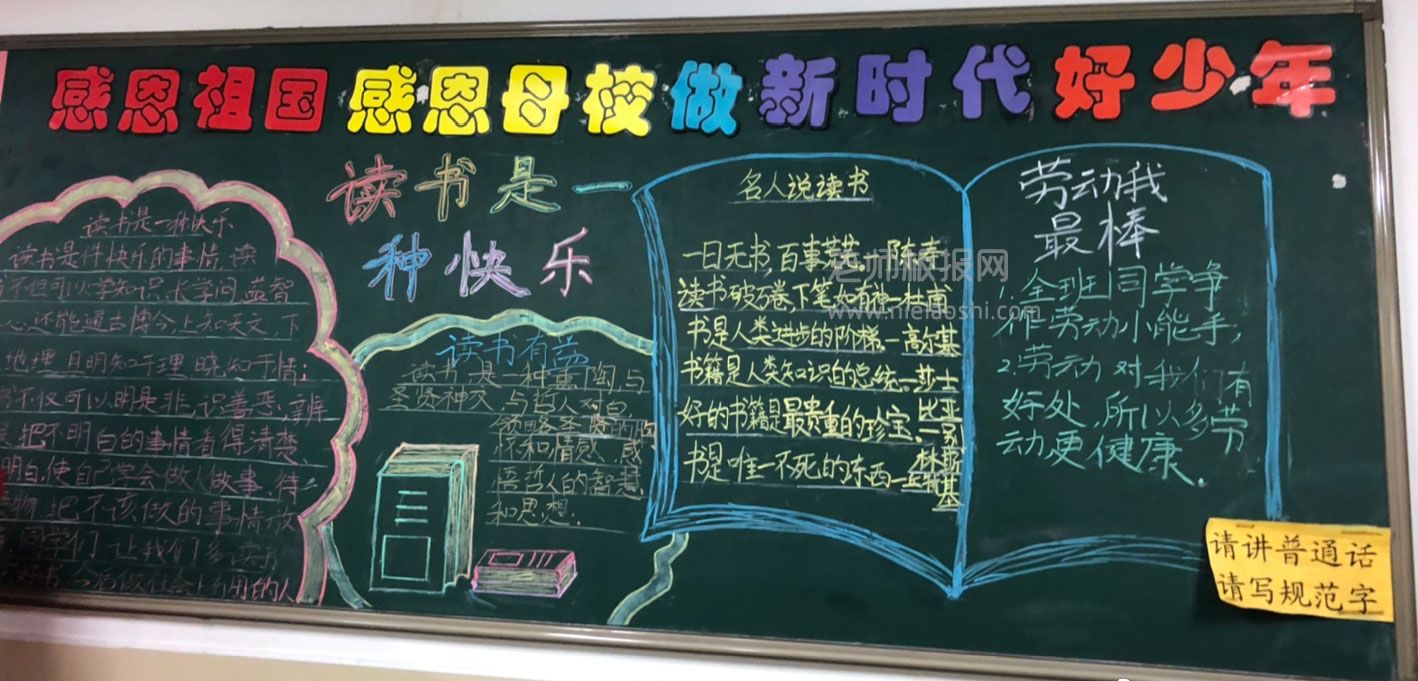 感恩祖国感恩母校做新时代好少年
读书是一
种快乐
读书是一种快乐
读书是件快乐的事情,读
不但可以学知识,长学问,益智
心,还能通古博今,上知天文,下
地理,且明知于理,晓知于情;
不仅可以明是非,识善恶,辨
把不明白的事情看得清楚、
明白,使自己学会做人做事,待
物,把不该做的事情放
同学们,让我们多读书
好书,今后做社会上有用的人
读书有益
读书,是一种熏陶,与
圣贤神交,与哲人对白
领略圣贤的胸
怀和情感,感
悟哲人的智慧
和思想.
名人说读书
一日无书,百事荒芜.一陈寿
读书破万卷,下笔如有神一杜甫
书是人类进步的阶梯.一高尔基
书籍是人类知识的总统.一莎士
比亚
好的书籍是最贵重的珍宝.一别
林斯基
书是唯一不死的东西一丘特
劳动我
最棒
1.全班同学争
作劳动小能手,
2.劳动对我们有
好处,所以多劳
动更健康.
请讲普通话
请写规范字
老师板报网
www.nielaoshi.com